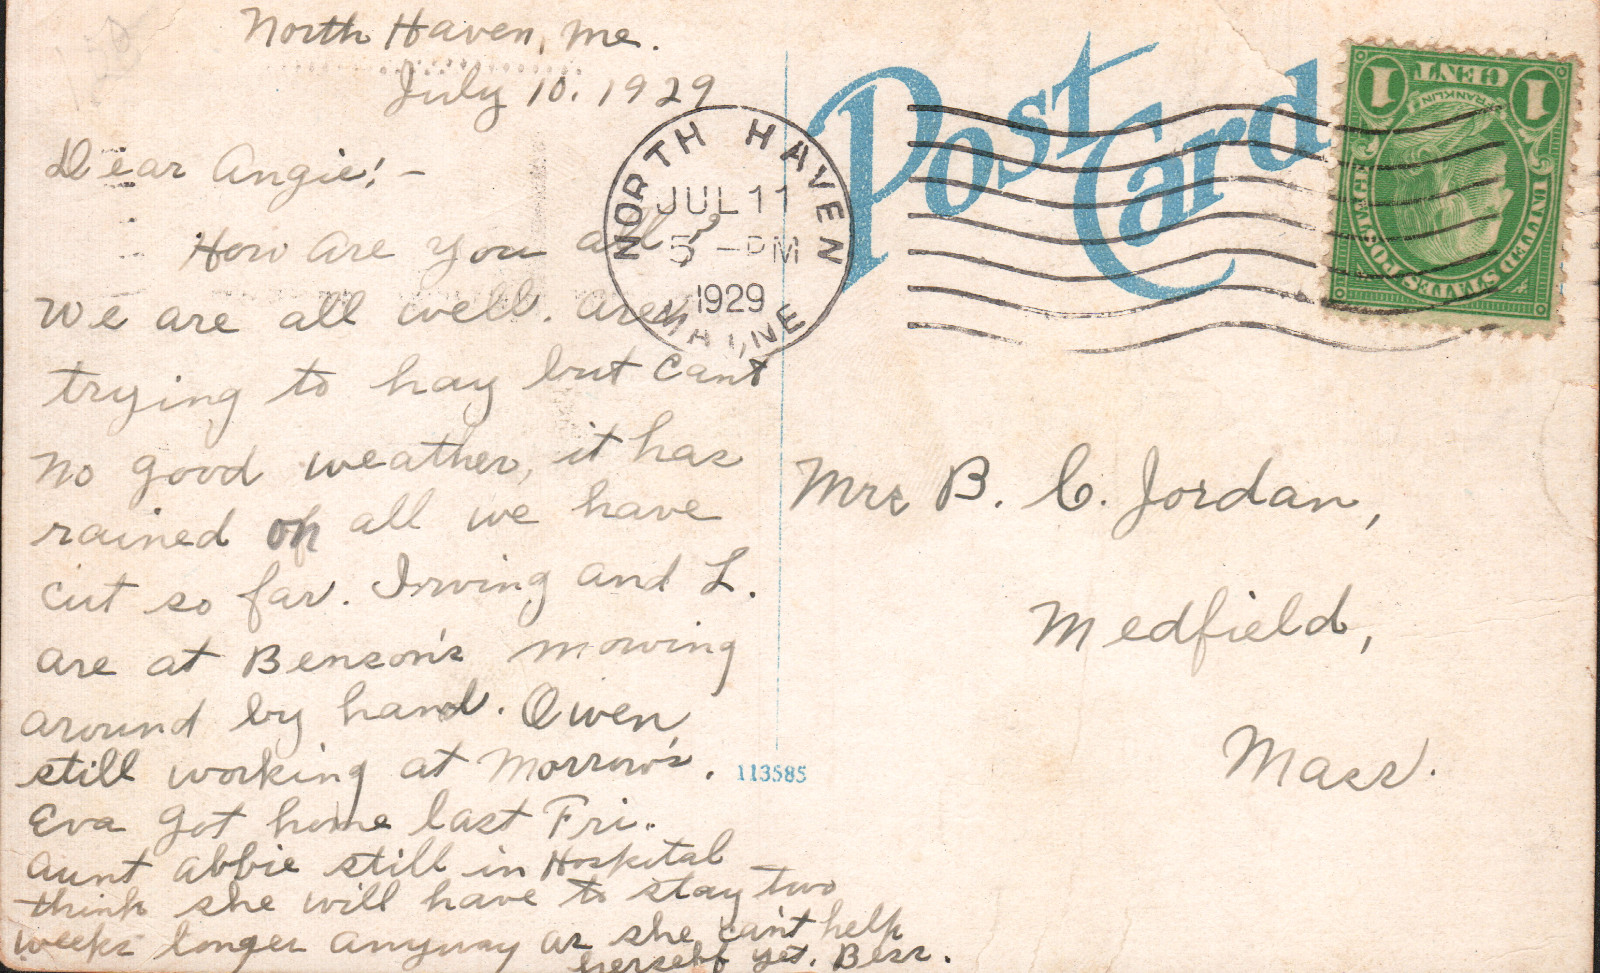 North Haven, Me.
July 10, 1929
Dear Angie! –
How are you all?
We are all well. are
trying to hay but cant
no good weather, it has
rained on all we have
cut so far. Irving and L.
are at Benson's mowing
around by hand. Owen
still working at Morrow's.
Eva got home last Fri.
Aunt Abbie still in Hospital
think she will have to stay two
weeks longer anyway as she can't help
herself yet. Bess.
NORTH HAVEN
JUL 11
5 – PM
1929
MAINE
Post Card
1 CENT 1
FRANKLIN
UNITED STATES POSTAGE
Mrs B. C. Jordan,
Medfield,
Mass.
113585